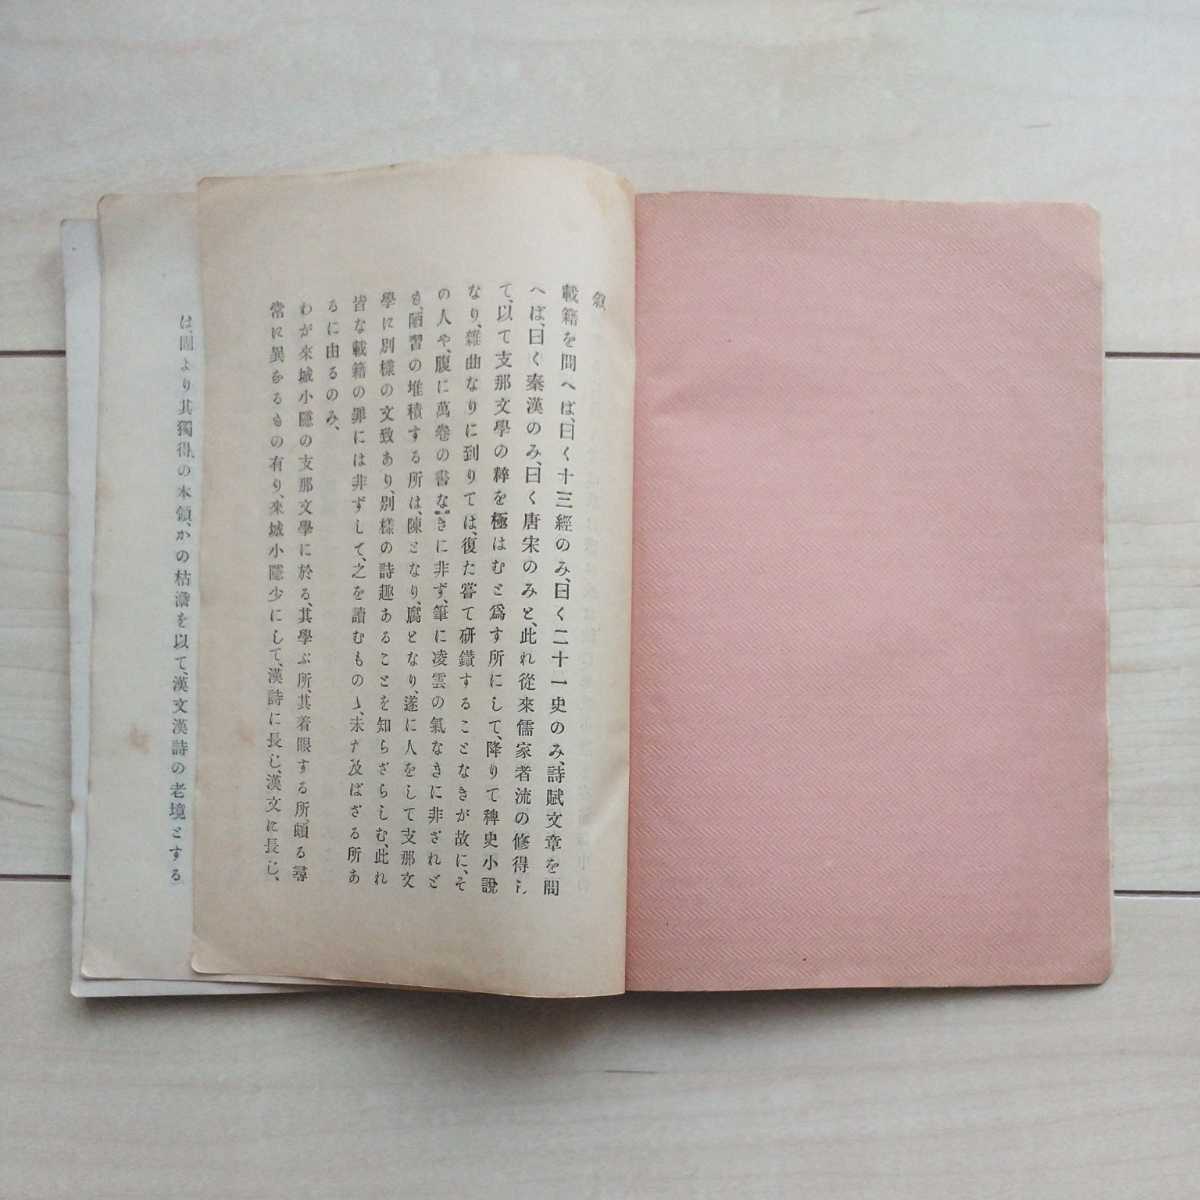 敘
載籍を問へば、曰く十三經のみ、曰く二十一史のみ、詩賦文章を問
へば、曰く秦漢のみ、曰く唐宋のみと、此れ從來儒家者流の修得し
て、以て支那文學の粹を極はむと爲す所にして、降りて稗史小說
なり、雜曲なりに到りては、復た嘗て硏鑽することなきが故に、そ
の人や、腹に萬卷の書なきに非ず、筆に凌雲の氣なきに非ざれど
も、陋習の堆積する所は、陳となり、腐となり、遂に人をして支那文
學に別樣の文致あり、別樣の詩趣あることを知らざらしむ、此れ
皆な載籍の罪には非ずして、之を讀むものゝ、未だ及ばざる所あ
るに由るのみ、
わが來城小隱の支那文學に於る、其學ぶ所、其着眼する所、頗る尋
常に異なるもの有り、來城小隱少にして、漢詩に長じ、漢文に長じ、
は、固より其獨得の本領、かの枯澹を以て、漢文漢詩の老境とする